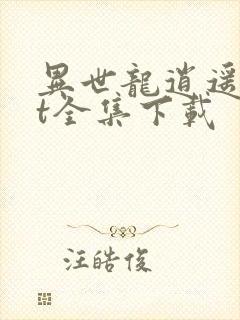 異世龍逍遥
t全集下載
汪皓俊